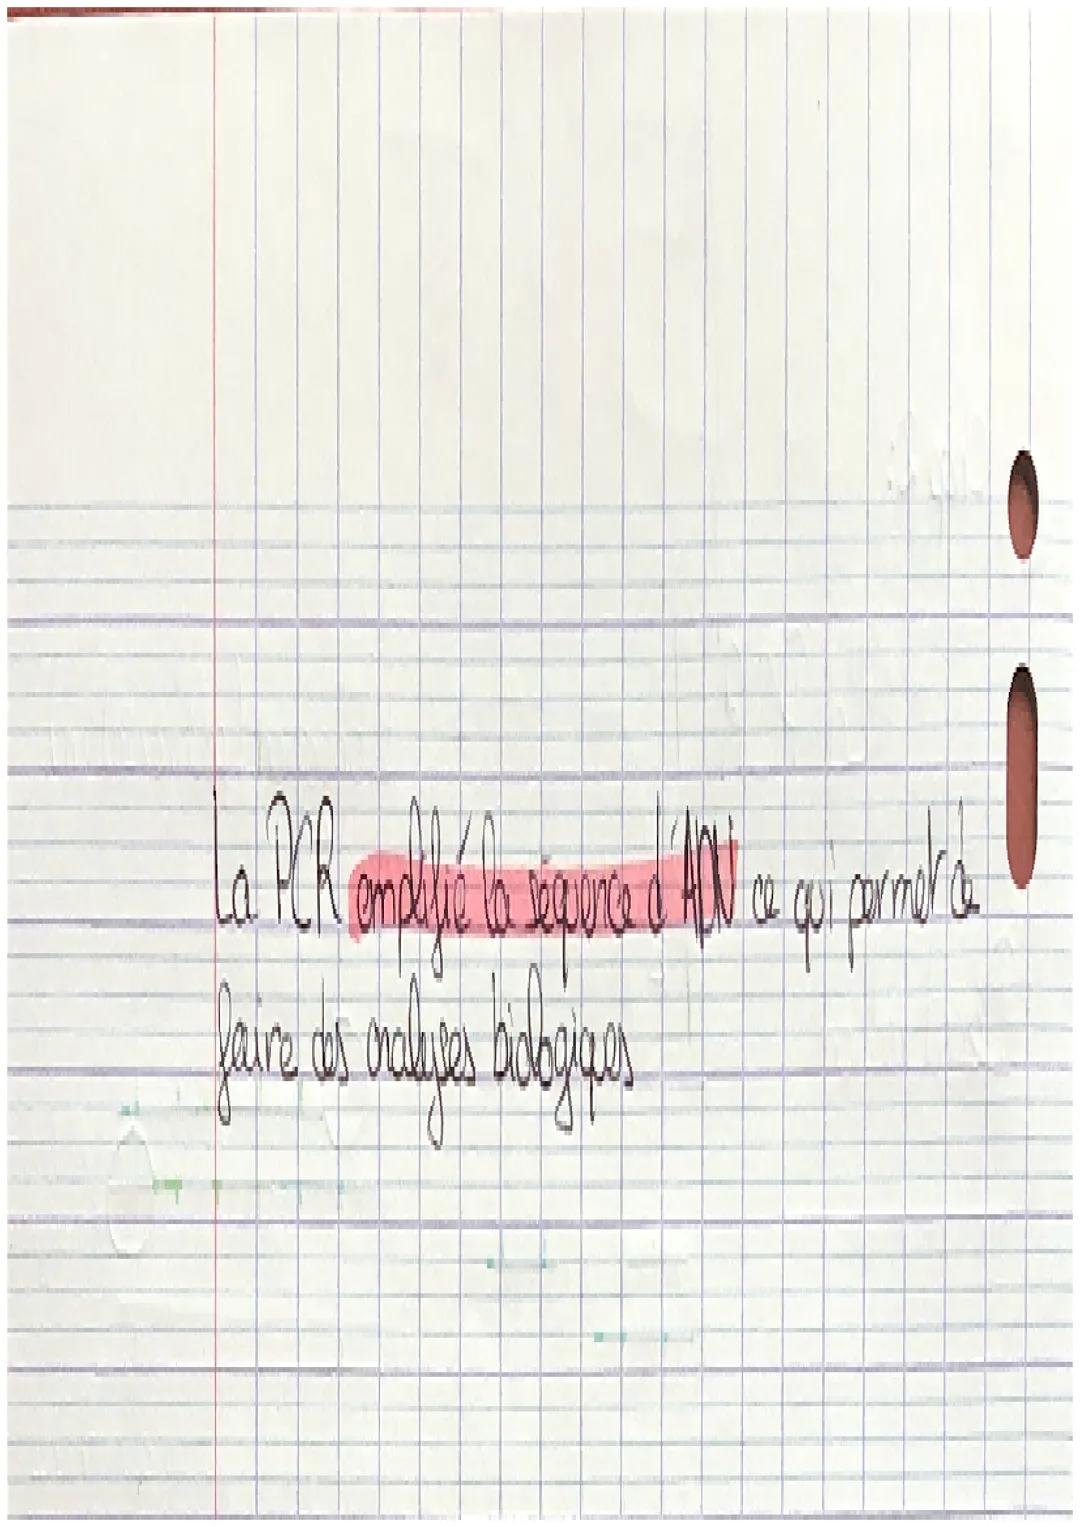 La PCR emplifié la séquence d'ADN ce qui permet de
faire des analyses biologiques